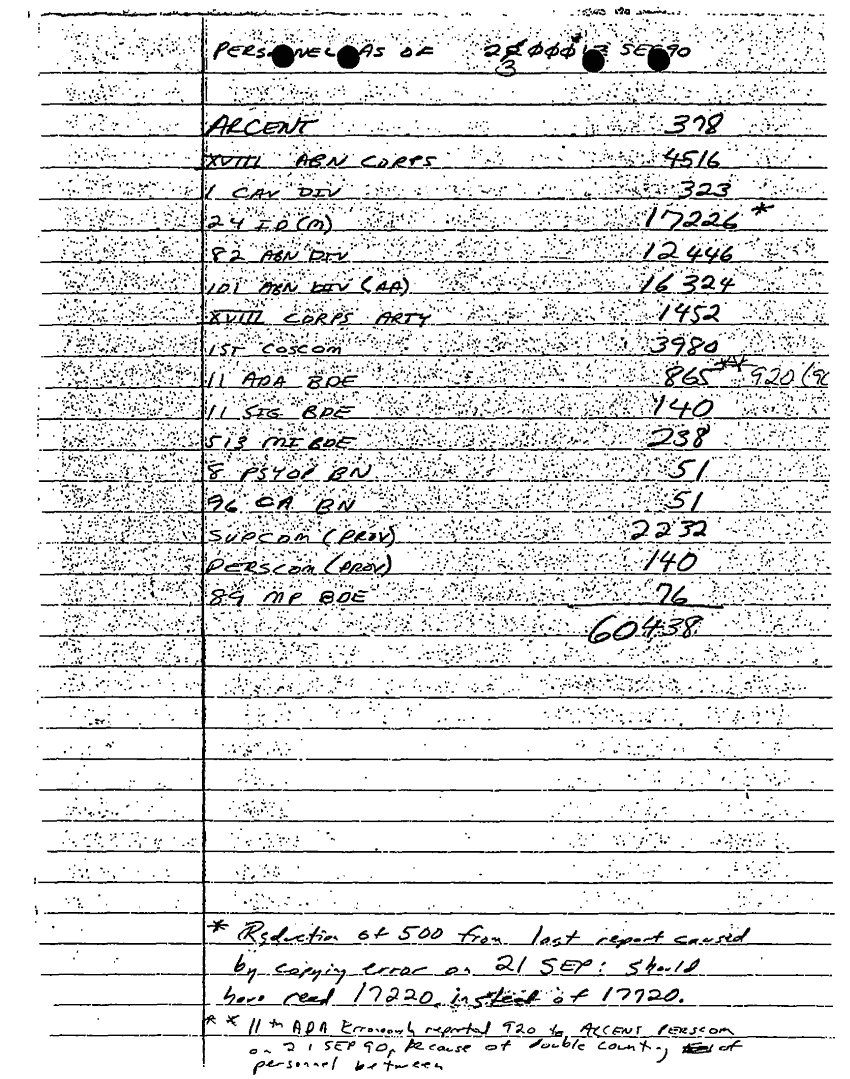 PERSONNEL AS OF 23 SEP 90
ARCENT 378
XVIII ABN CORPS 4516
1 CAV DIV 323
24 ID (M) 17226 *
82 ABN DIV 12446
101 ABN DIV (AA) 16324
XVIII CORPS ARTY 1452
1ST COSCOM 3980
11 ADA BDE 865 ** 920
11 SIG BDE 140
513 MI BDE 238
8 PSYOP BN 51
96 CA BN 51
SUPCOM (PROV) 2232
PERSCOM (PROV) 140
89 MP BDE 76
60438
* Reduction of 500 from last report caused
by copying error on 21 SEP: should
have read 17220 instead of 17720.
** 11th ADA Erroneously reported 920 to ARCENT PERSCOM
on 21 SEP 90, because of double counting of
personnel between